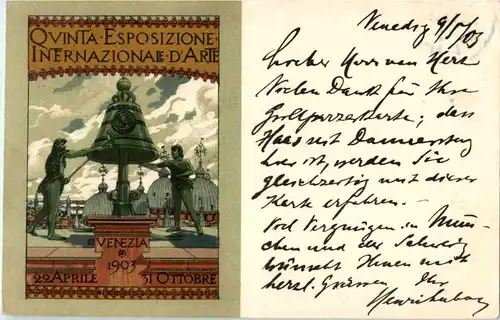 QVINTA · ESPOSIZIONE
INTERNAZIONALE · D'ARTE
VENEZIA
1903
22 APRILE 31 OTTOBRE
Venedig 9/5/03
Lieber Herr von
Vielen Dank für Ihre
dass
Haas seit Donnerstag
hier ist, werden Sie
gleichzeitig mit dieser
Karte erfahren. –
Viel Vergnügen in Mün-
chen und der Schweiz
wünscht Ihnen mit
herzl. Grüssen Ihr